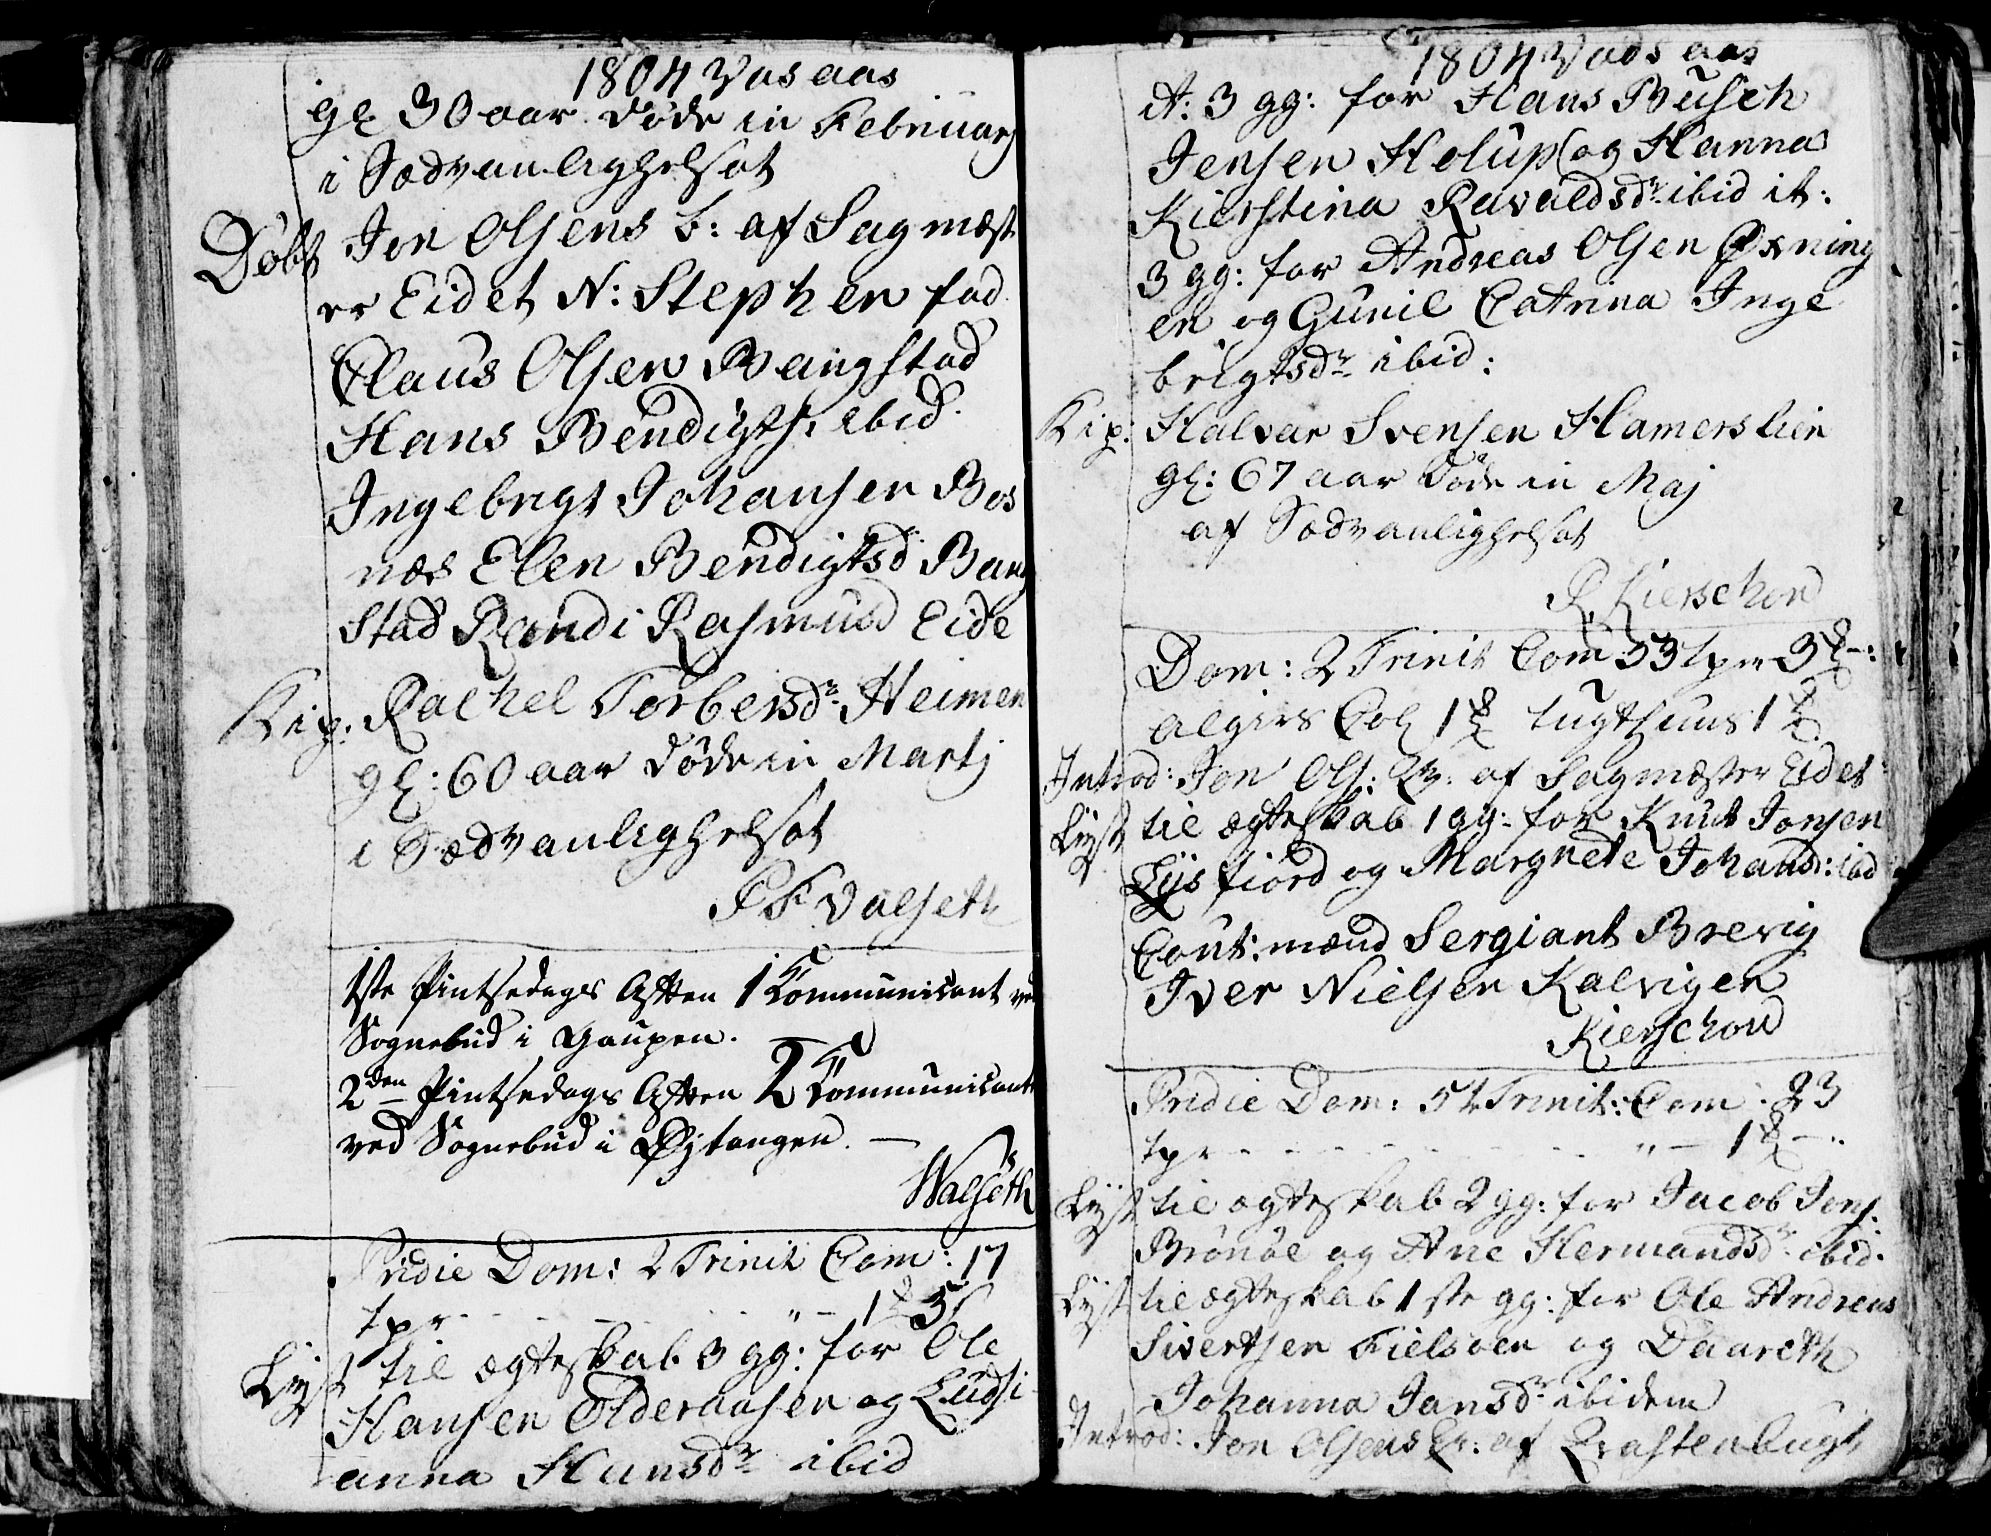 1804 Vas aas
gl 30 aar døde in Februarj
i Sædvanlighelsot
Døbt Jon Olsens b: af Sagmæst
er Eidet N: Stephen fad
Claus Olsen Bangstad
Hans Bendigts: ibid
Ingebrigt Johansen Bos
næs Elen Bendigtsd Bang
stad Randi Rasmusd Eide
Kip: Rachel Torbersdr Heimen
gl: 60 aar døde in Martj
i Sædvanlighelsot
P F Valseth
1ste Pintsedags Aften 1 Kommunicant ved
Sognebud i Gaupen.
2den Pintsedags Aften 2 Kommunicant
ved Sognebud i Øjtangen.
Walseth
Pridie Dom: 2 Trinit Com: 17
tpr
Lyst til ægteskab 3 gg: for Ole
Hansen Olderaasen og Ludsi
anna Hansdr ibid
1804 Vads aas
it: 3 gg: for Hans Busch
Jensen Holup og Hanna
Kierstina Ravaldsdr ibid it:
3 gg: for Andreas Olsen Øxning
en og Gunil Catrina Inge
brigtsdr ibid:
Kip: Halvar Svensen Hamerslien
gl: 67 aar døde in Maj
af Sædvanlighelsot
R Kierschou
Dom: 2 Trinit Com 33 tpr 3
algirs Col 1 tugthuus 1
Introd: Jon Ols: af Sagmæster Eidet
Lyst til ægteskab 1 gg: for Knut Jonsen
Lysfiord og Margrete Johansd: ibid
Caut: mænd Sergiant Brevig
Iver Nielsen Kalvigen
Kierschou
Pridie Dom: 5t Trinit: Com: 23
tpr 1
Lyst til ægteskab 2 gg: for Jacob Jons:
Brönöe og Ane Hermandsdr ibid:
Lyst til ægteskab 1ste gg: for Ole Andreas
Sivertsen Fielsøen og Daareth
Johanna Jansdr ibidem
Introd: Jon Olsens af